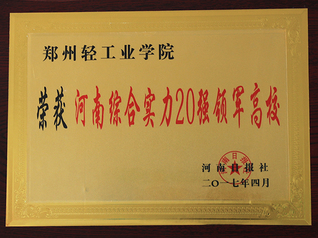 郑州轻工业学院
荣获 河南综合实力20强领军高校
河南日报社
二〇一七年四月